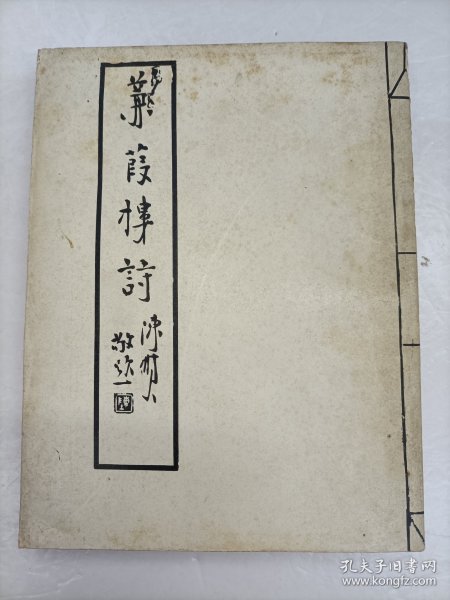 蒹葭樓詩
陳樹人
敬題
孔夫子旧书网
www.kongfz.com